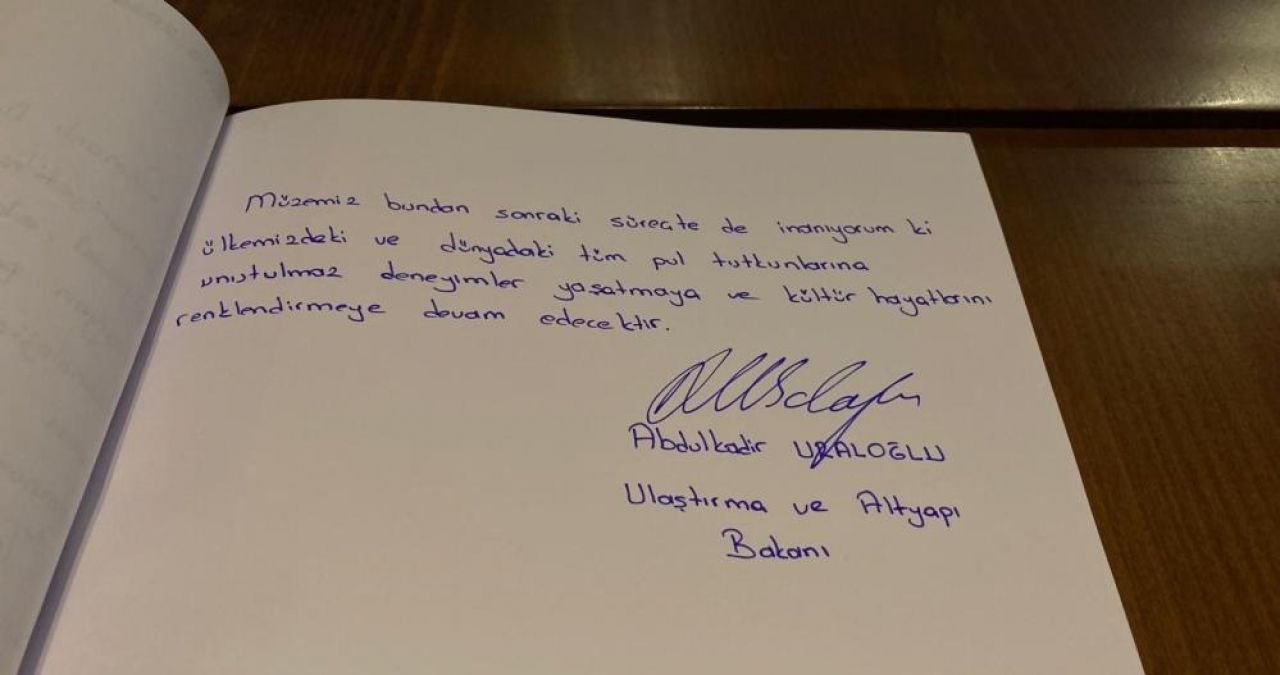 Müzemiz bundan sonraki süreçte de inanıyorum ki
ülkemizdeki ve dünyadaki tüm pul tutkunlarına
unutulmaz deneyimler yaşatmaya ve kültür hayatlarını
renklendirmeye devam edecektir.
Abdulkadir URALOĞLU
Ulaştırma ve Altyapı
Bakanı